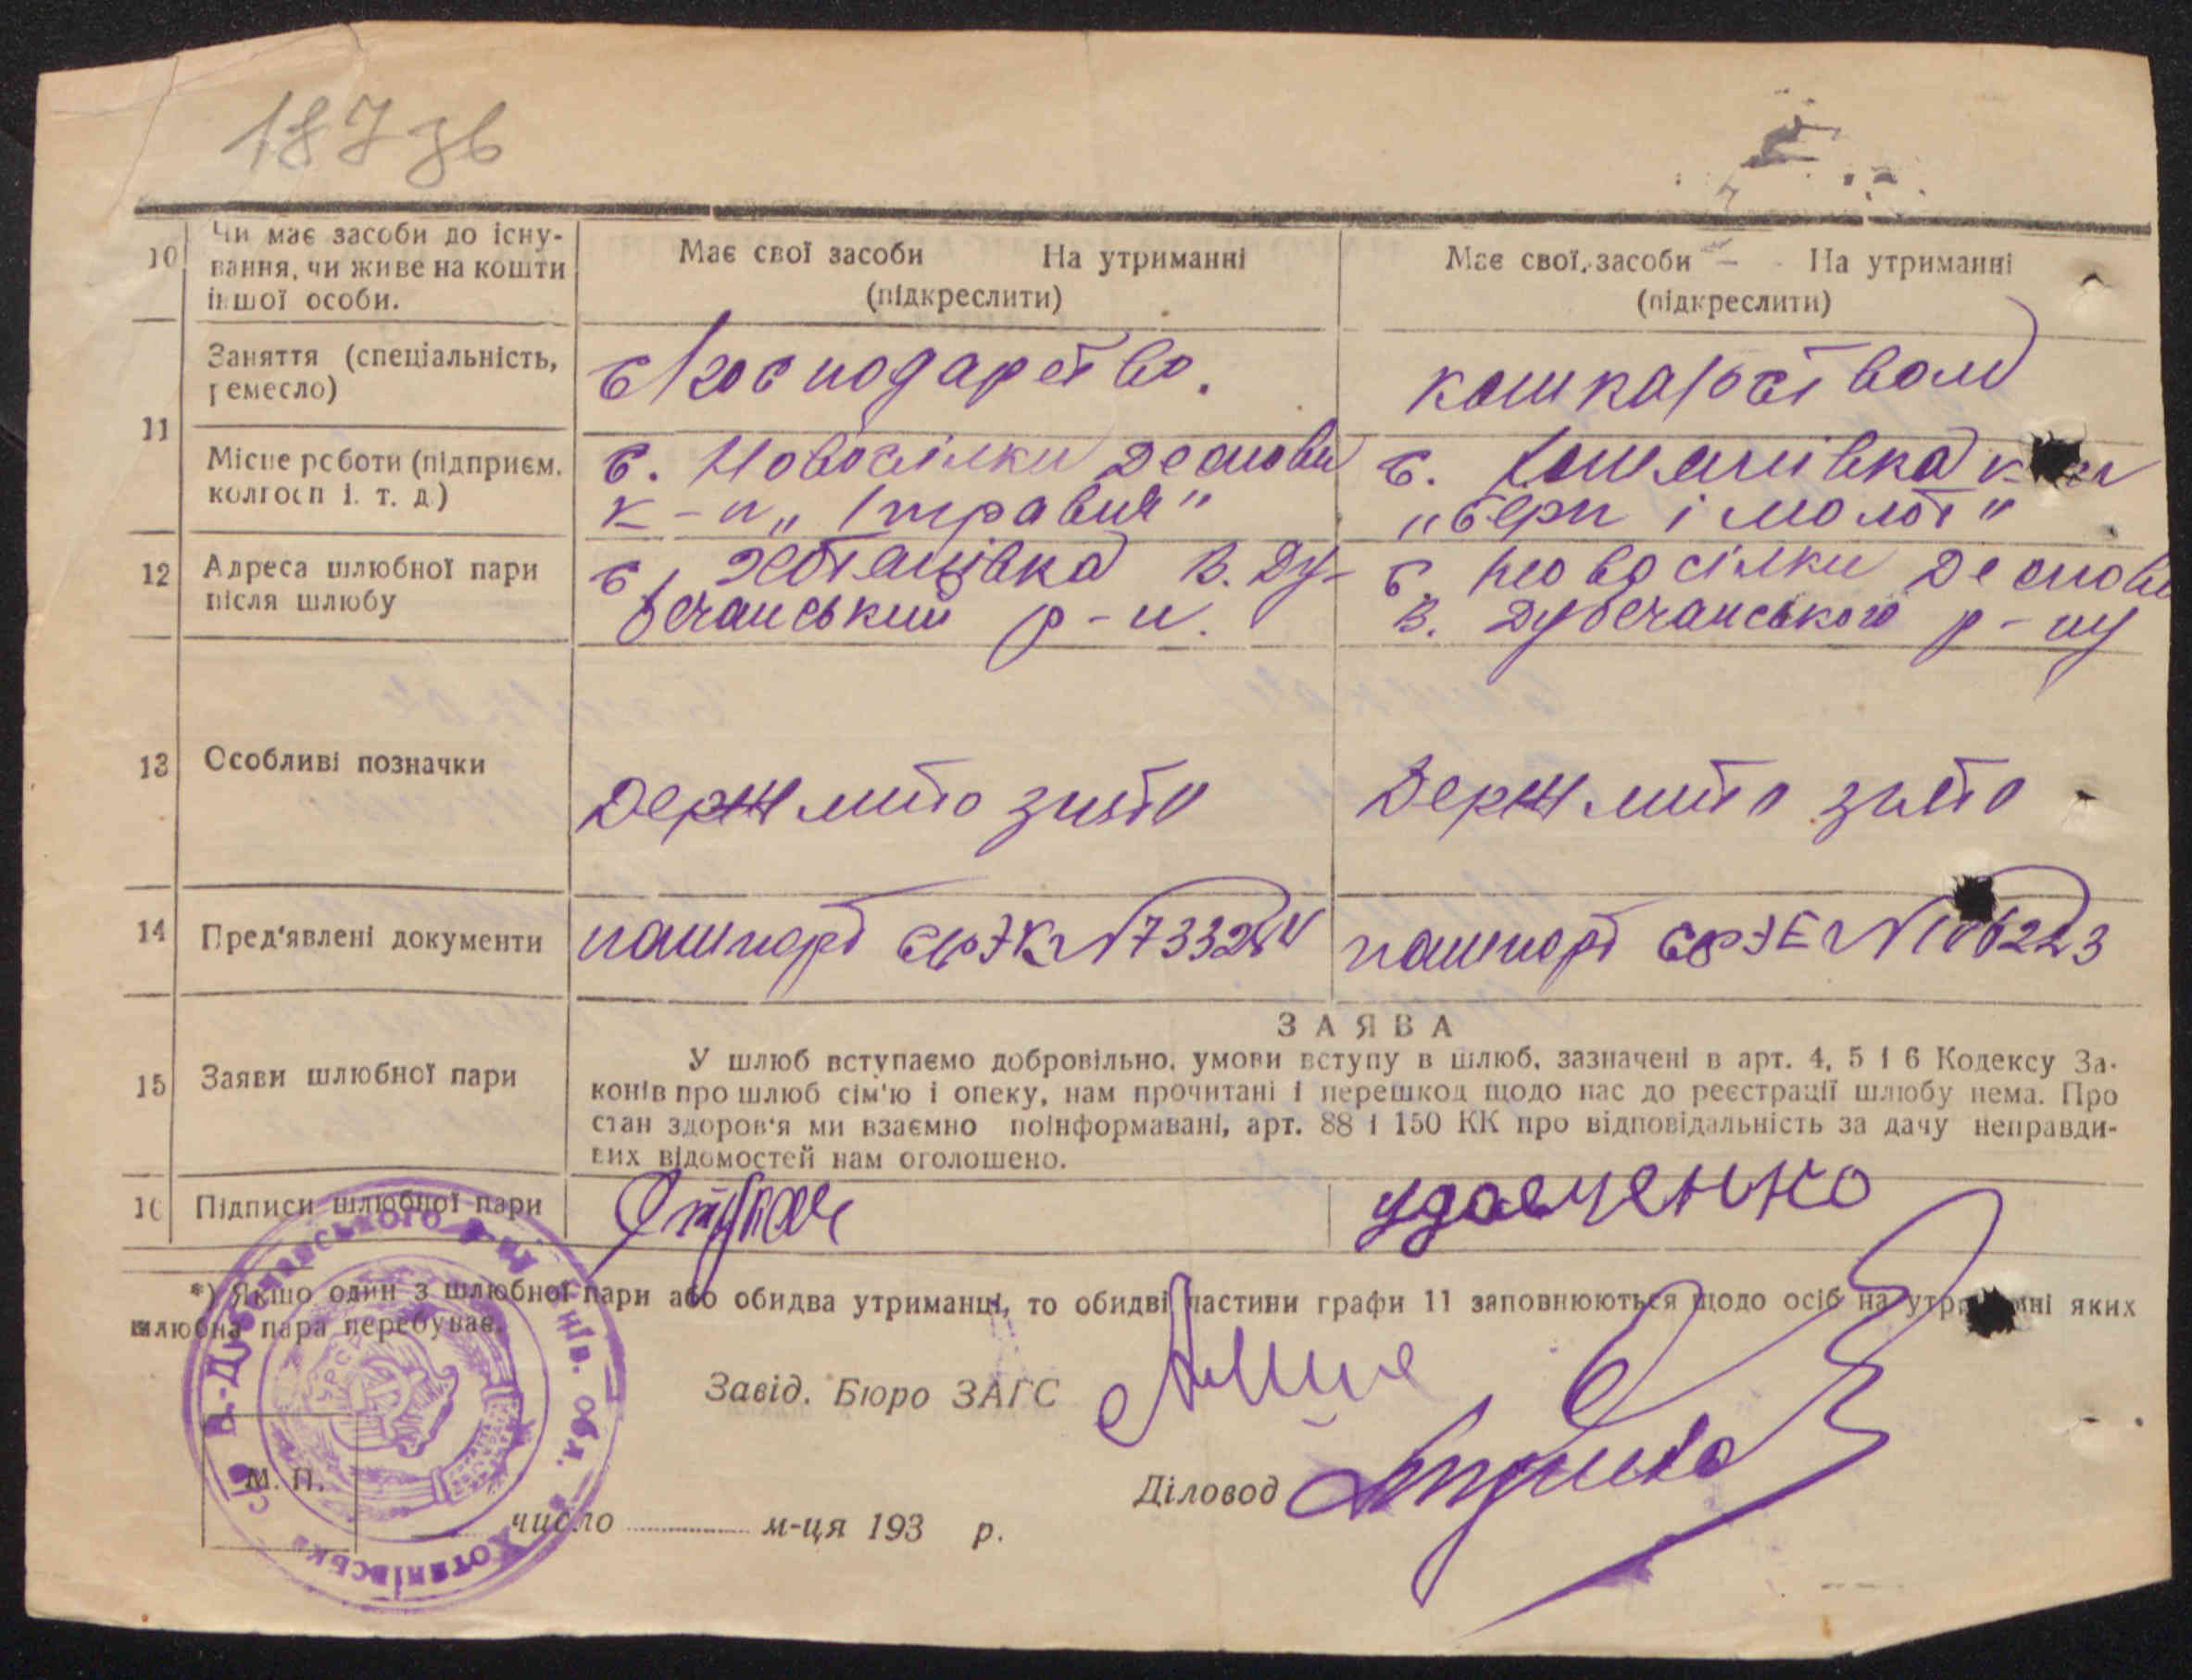 187 зв
10 Чи має засоби до існу-
вання, чи живе на кошти
іншої особи.
Має свої засоби На утриманні
(підкреслити)
Має свої засоби На утриманні
(підкреслити)
11
Заняття (спеціальність,
ремесло)
с/господарство.
Місце роботи (підприєм.
колгосп і. т. д.)
с. Новосілки Десною
к-п "
с. к
"серп і молот"
12 Адреса шлюбної пари
після шлюбу
с. Хотянівка В. Ду-
бечанський р-н.
с. Новосілки Десною
В. Дубечанського р-ну
13 Особливі позначки
Держ мито знято
Держ мито знято
14 Пред'явлені документи
пашпорт ЕК №
пашпорт ЕЕ №
15 Заяви шлюбної пари
ЗАЯВА
У шлюб вступаємо добровільно, умови вступу в шлюб, зазначені в арт. 4, 5 і 6 Кодексу За-
конів про шлюб сім'ю і опеку, нам прочитані і перешкод щодо нас до реєстрації шлюбу нема. Про
стан здоров'я ми взаємно поінформавані, арт. 88 і 150 КК про відповідальність за дачу неправди-
вих відомостей нам оголошено.
16 Підписи шлюбної пари
удовченко
*) Якщо один з шлюбної пари або обидва утриманці, то обидві частини графи 11 заповнюються щодо осіб на утриманні яких
шлюбна пара перебуває.
Завід. Бюро ЗАГС
Діловод
М. П.
число м-ця 193 р.
Хотянівська В.-Дубечанського р-ну Київ. Обл.
УРСР